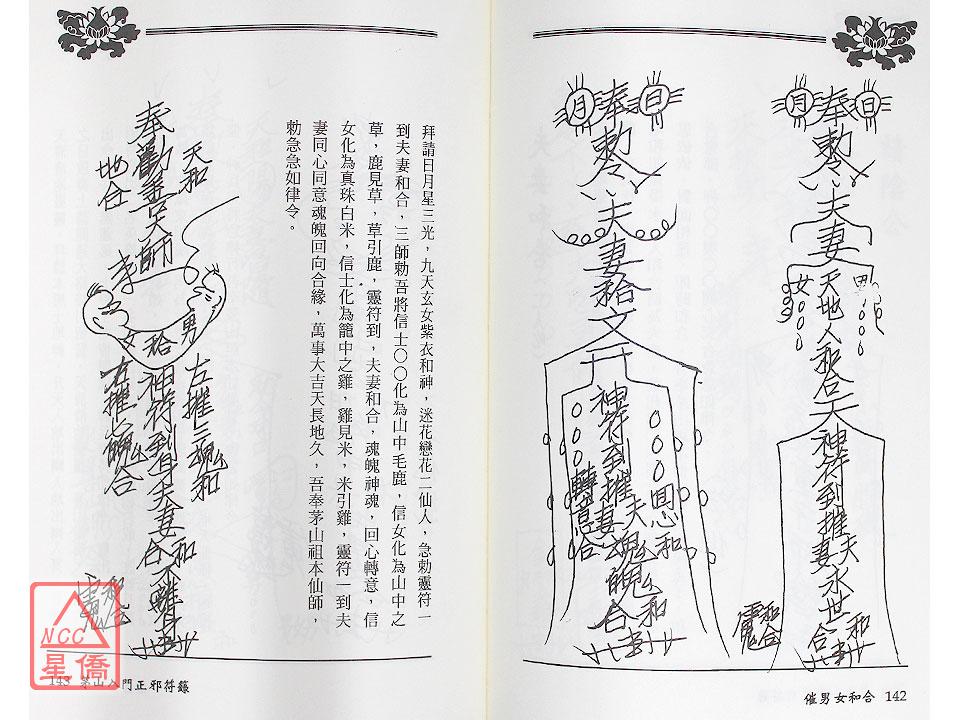 月 奉 日
勅令
夫妻
男
女
天地人和合
神符到摧夫妻永世和合
和合
月 奉 日
勅令
夫妻
神符到摧夫妻
恩和
轉意合
催男女和合 142
拜請日月星三光，九天玄女紫衣和神，迷花戀花二仙人，急勅靈符一
到夫妻和合，三師勅吾將信士〇〇化為山中毛鹿，信女化為山中之
草，鹿見草，草引鹿，靈符到，夫妻和合，魂魄神魂，回心轉意，信
女化為真珠白米，信士化為籠中之雞，雞見米，米引雞，靈符一到夫
妻同心同意魂魄回向合緣，萬事大吉天長地久，吾奉茅山祖本仙師，
勅急急如律令。
天和
奉勸善大師
地合
李
男
女
左摧三魂和
神符到
夫妻和合
右摧七魄合
143 茅山入門正邪符籙
NCC
星僑